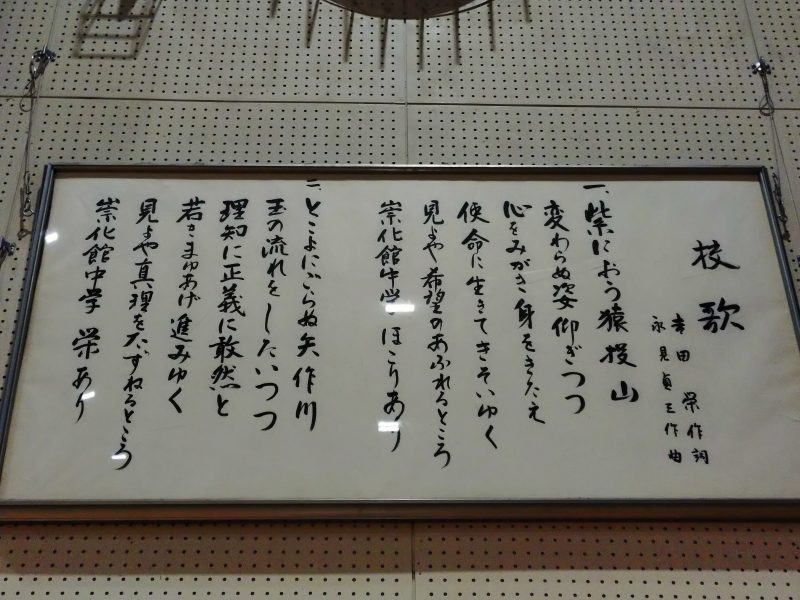 校歌
幸田 栄作詞
永見貞三作曲
一、紫におう猿投山
変わらぬ姿仰ぎつつ
心をみがき身をきたえ
使命に生きてきそいゆく
見よや希望のあふれるところ
崇化館中学ほこりあり
二、とこよににごらぬ矢作川
玉の流れをしたいつつ
理知に正義に敢然と
若きまゆあげ進みゆく
見よや真理をたずねるところ
崇化館中学 栄あり